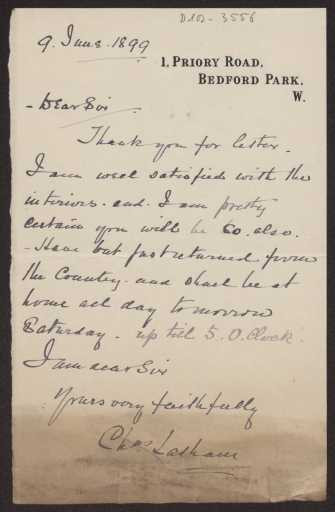 D102-3556
9. June. 1899
1, PRIORY ROAD,
BEDFORD PARK.
W.
Dear Sir
Thank you for letter.
I am well satisfied with the
interiors. and. I am pretty
certain you will be so. also.
Have but just returned from
the Country. and shall be at
home all day tomorrow
Saturday. up till 5. O.Clock.
I am dear Sir
Yours very faithfully
Chas Latham